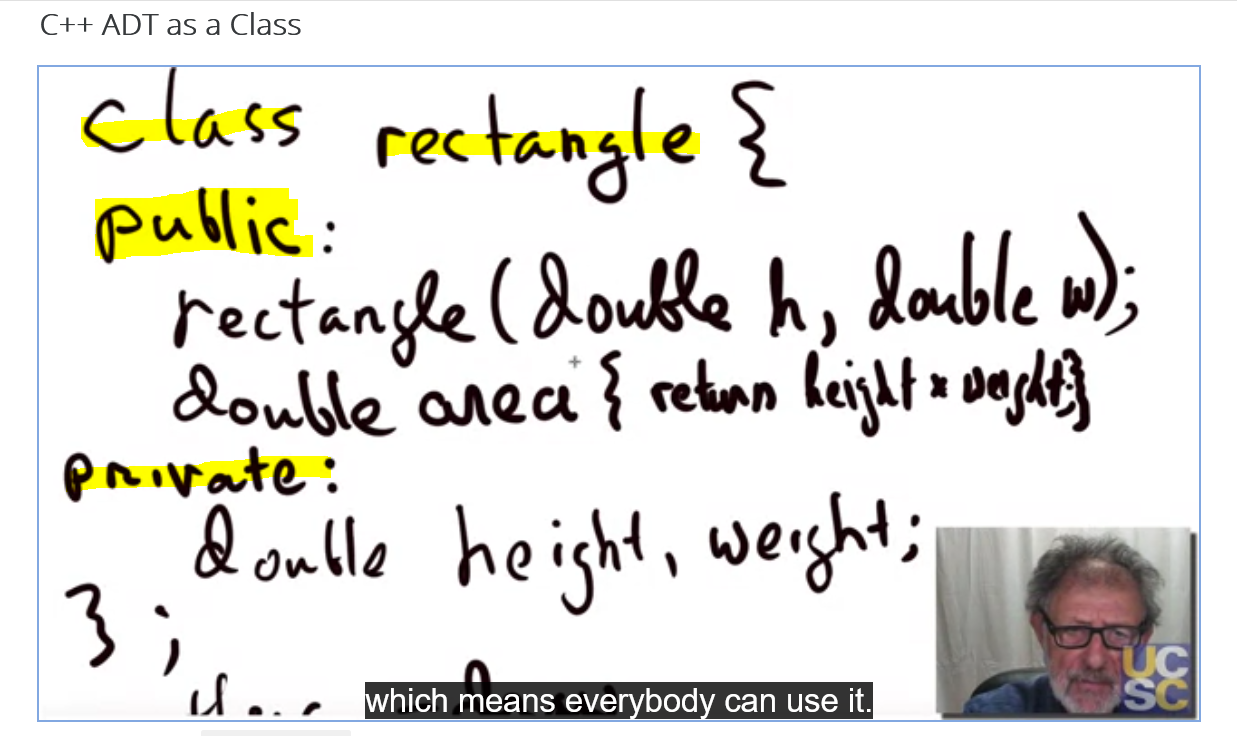 C++ ADT as a Class
class rectangle {
public:
rectangle(double h, double w);
double area { return height * weight;}
private:
double height, weight;
};
which means everybody can use it.
UC
SC